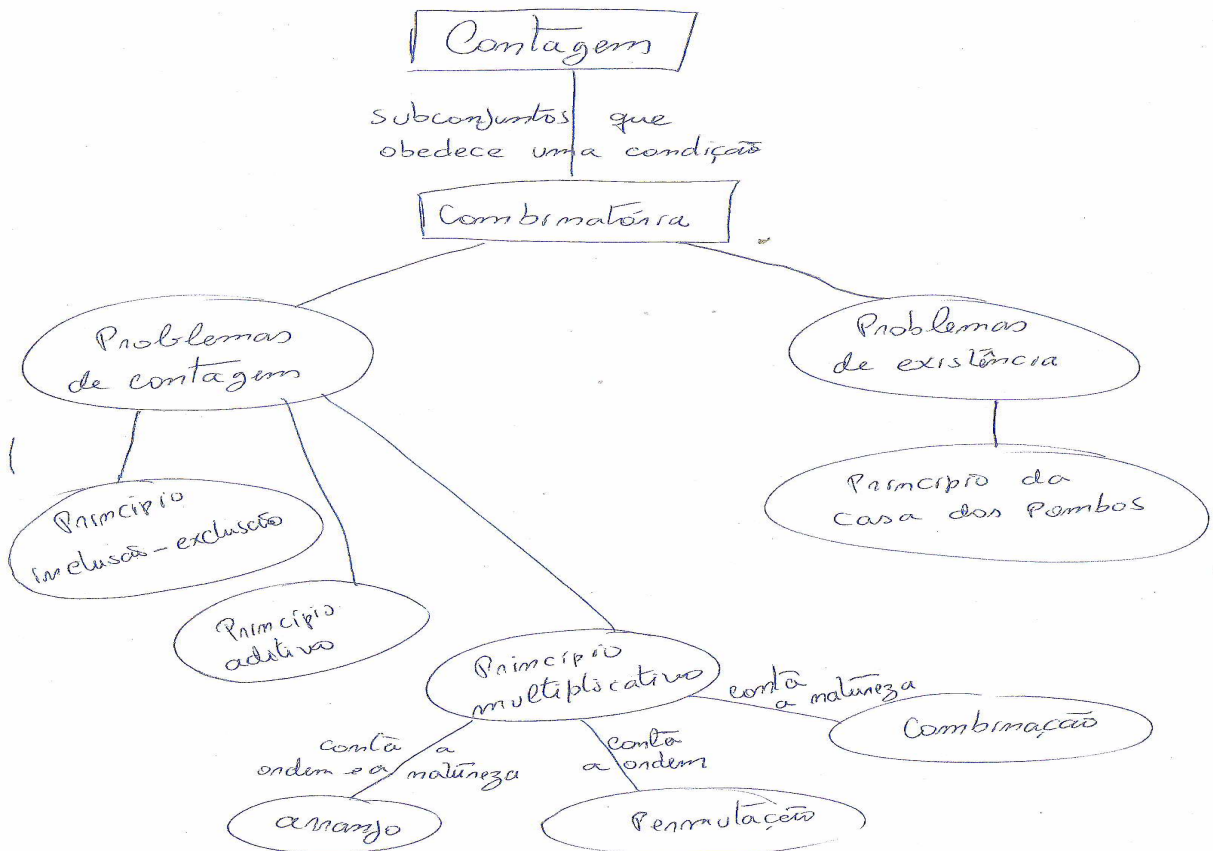 Contagem
subconjuntos que
obedece uma condição
Combinatória
Problemas
de contagem
Problemas
de existência
Princípio
inclusão-exclusão
Princípio da
casa dos Pombos
Princípio
aditivo
Princípio
multiplicativo
conta
a natureza
Combinação
conta a
ordem e a natureza
conta
a ordem
arranjo
Permutação